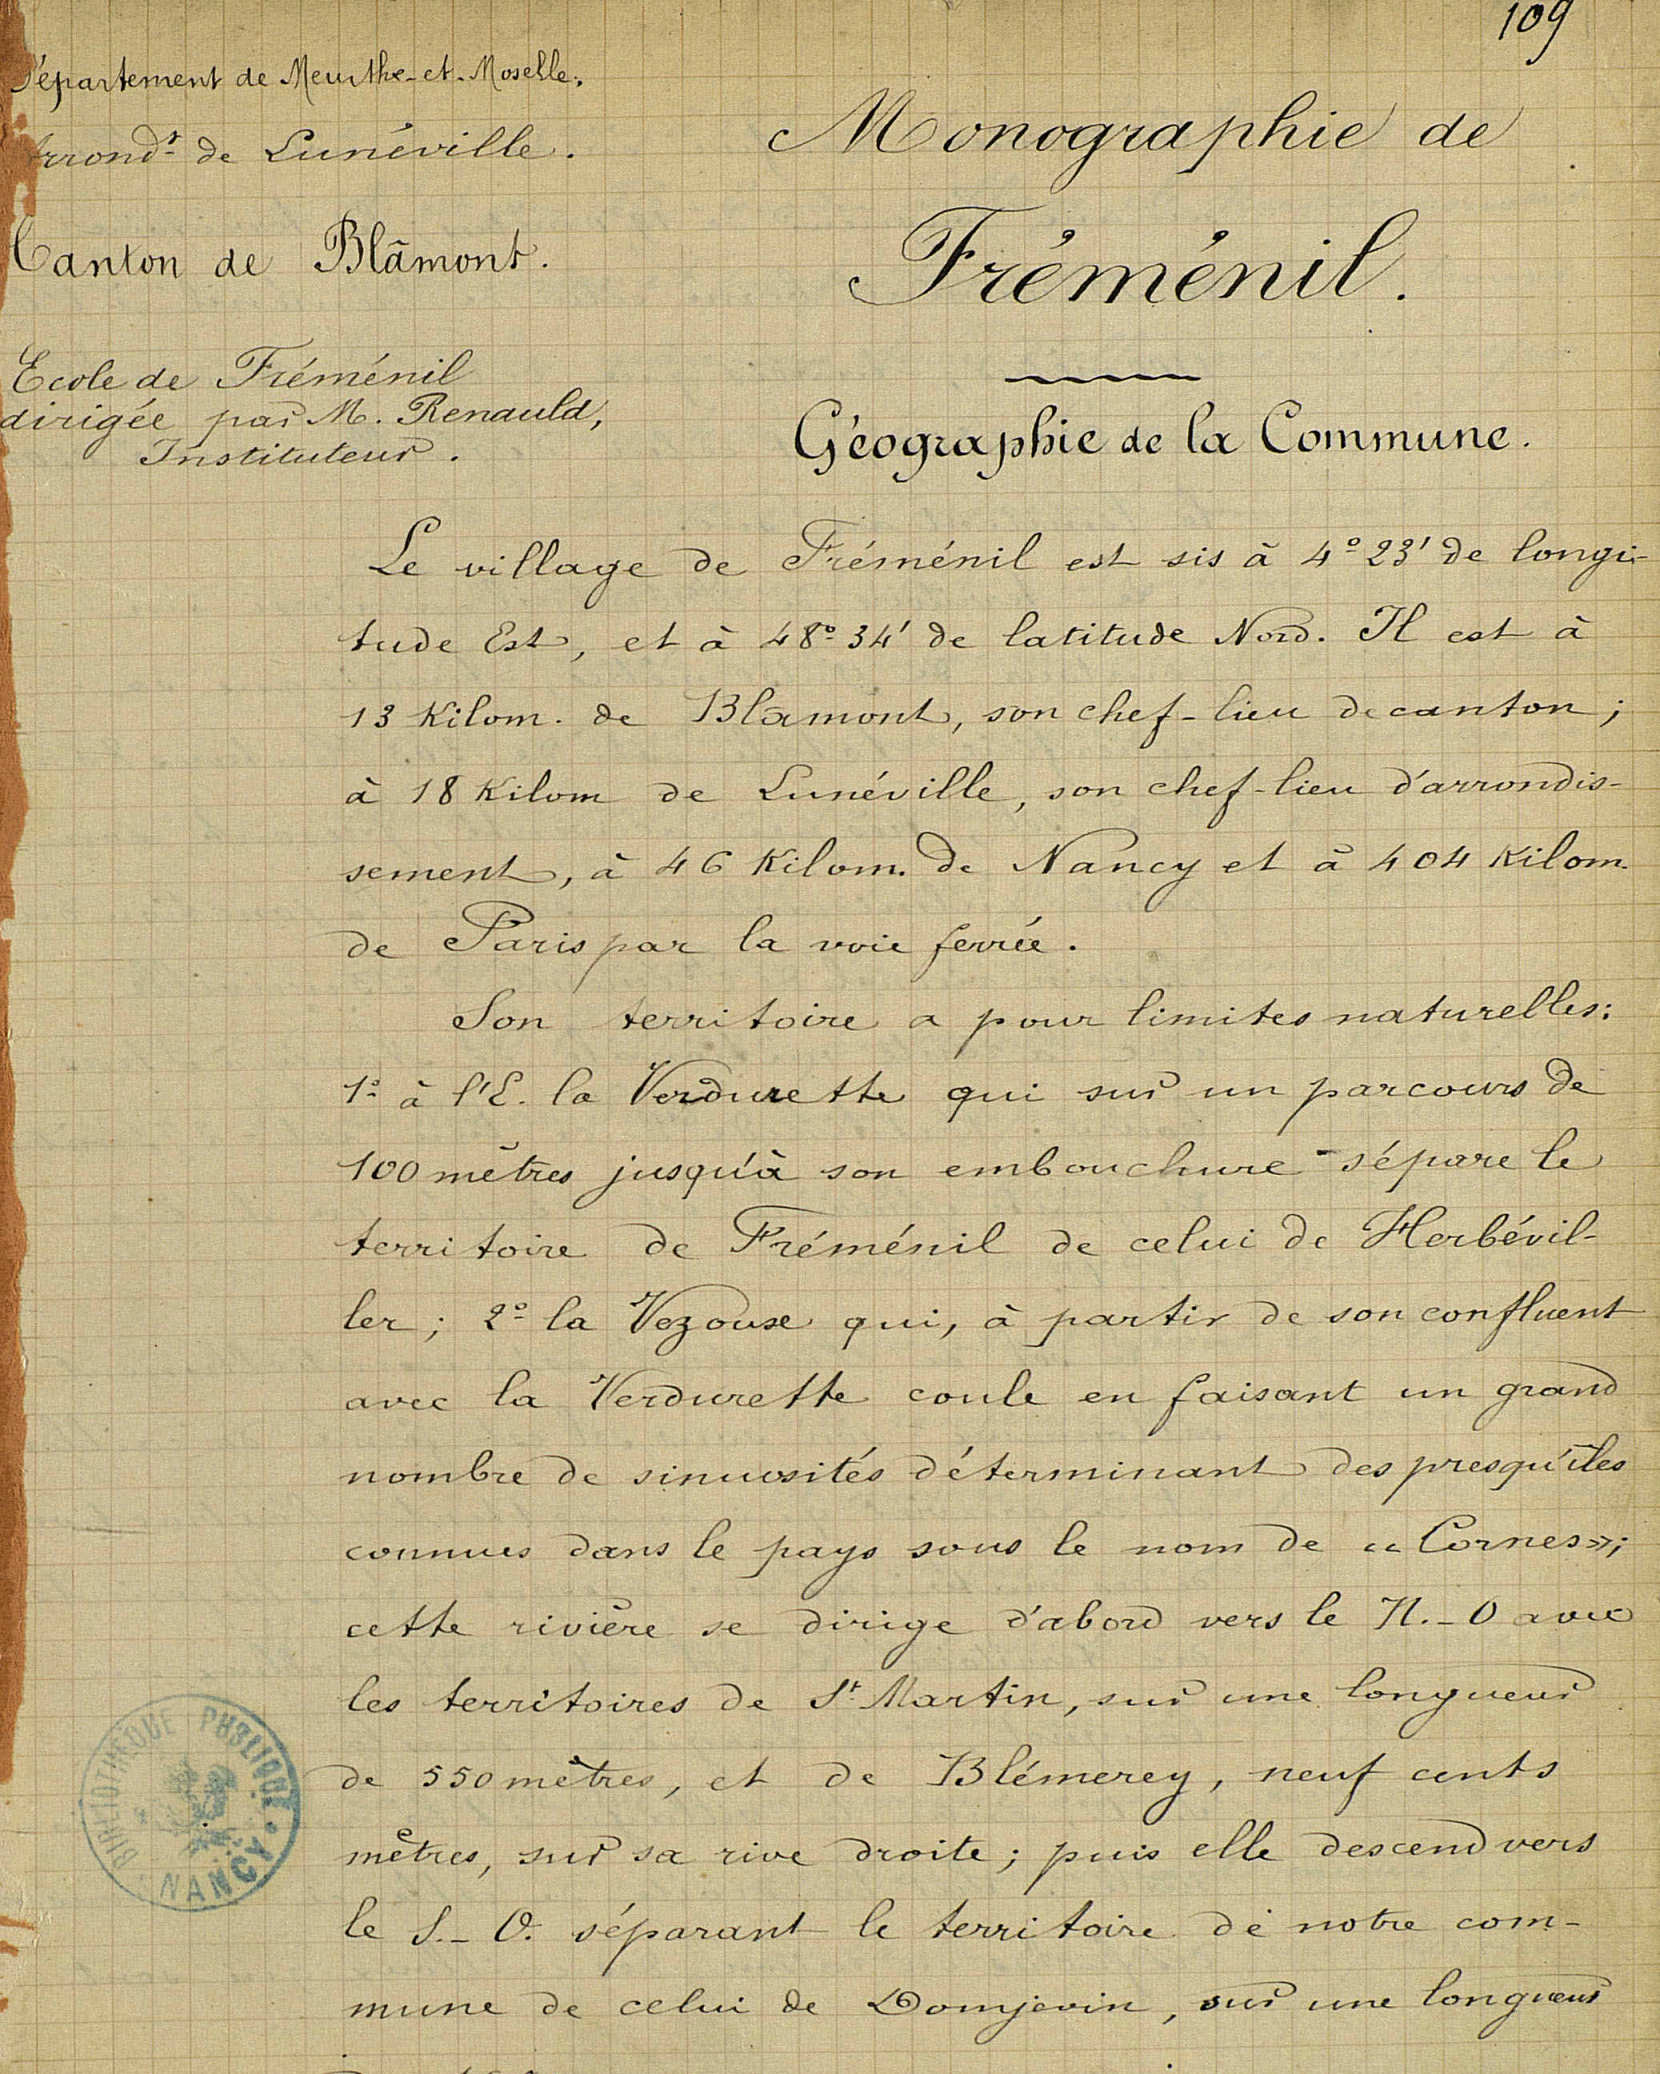 109
Département de Meurthe-et-Moselle.
Arrond.t de Lunéville.
Canton de Blâmont.
Ecole de Fréménil
dirigée par M. Renauld,
Instituteur.
Monographie de
Fréménil.
Géographie de la Commune.
Le village de Fréménil est sis à 4° 23' de longi-
tude Est, et à 48° 34' de latitude Nord. Il est à
13 Kilom. de Blâmont, son chef-lieu de canton;
à 18 Kilom de Lunéville, son chef-lieu d'arrondis-
sement, à 46 Kilom. de Nancy et à 404 Kilom.
de Paris par la voie ferrée.
Son territoire a pour limites naturelles:
1° à l'E. la Verdurette qui sur un parcours de
100 mètres jusqu'à son embouchure sépare le
territoire de Fréménil de celui de Herbévil-
ler; 2° la Vezouse qui, à partir de son confluent
avec la Verdurette coule en faisant un grand
nombre de sinuosités déterminant des presqu'îles
connues dans le pays sous le nom de « Cornes »;
cette rivière se dirige d'abord vers le N.-O avec
les territoires de St Martin, sur une longueur
de 550 mètres, et de Blémerey, neuf cents
mètres, sur sa rive droite; puis elle descend vers
le S.-O. séparant le territoire de notre com-
mune de celui de Domjevin, sur une longueur
BIBLIOTHÈQUE PUBLIQUE
NANCY